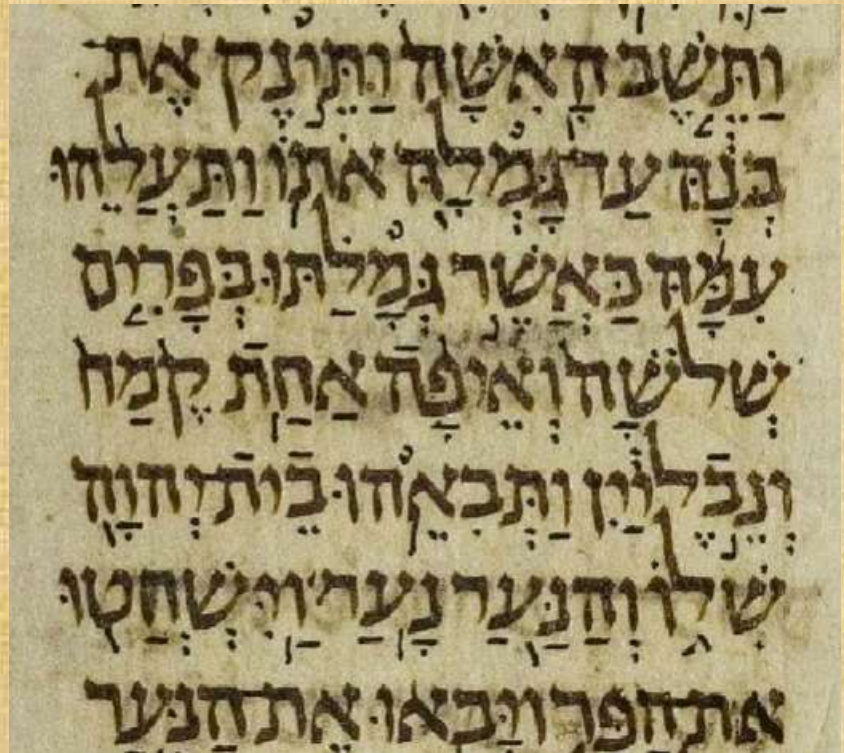 וַתֵּשֶׁב הָאִשָּׁה וַתֵּינֶק אֶת
בְּנָהּ עַד גָּמְלָהּ אֹתוֹ וַתַּעֲלֵהוּ
עִמָּהּ כַּאֲשֶׁר גְּמָלַתּוּ בְּפָרִים
שְׁלֹשָׁה וְאֵיפָה אַחַת קֶמַח
וְנֵבֶל יַיִן וַתְּבִאֵהוּ בֵית יְהוָה
שִׁלוֹ וְהַנַּעַר נָעַר וַיִּשְׁחֲטוּ
אֶת הַפָּר וַיָּבִאוּ אֶת הַנַּעַר